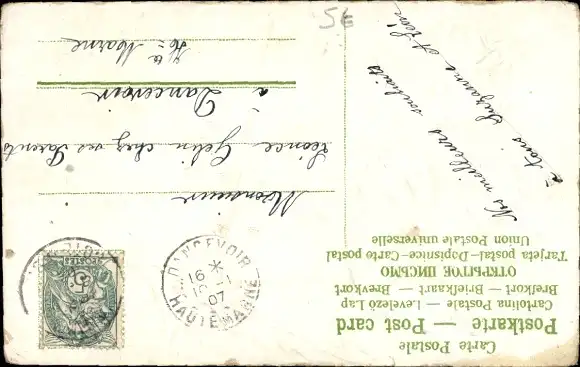 Carte Postale
Postkarte — Post card
Cartolina Postale — Levelező Lap
Brefkort — Briefkaart — Brevkort
ОТКРЫТОЕ ПИСЬМО
Tarjeta postal - Dopisnice - Carte postal
Union Postale universelle
Nos meilleurs souhaits
à tous Suzanne et Léon
DANCEVOIR
16 *
15 -1
07
HAUTE MARNE
POSTES
5
Monsieur
Léonce Gelin chez ses Parents
à Dancevoir
Hte Marne
5E